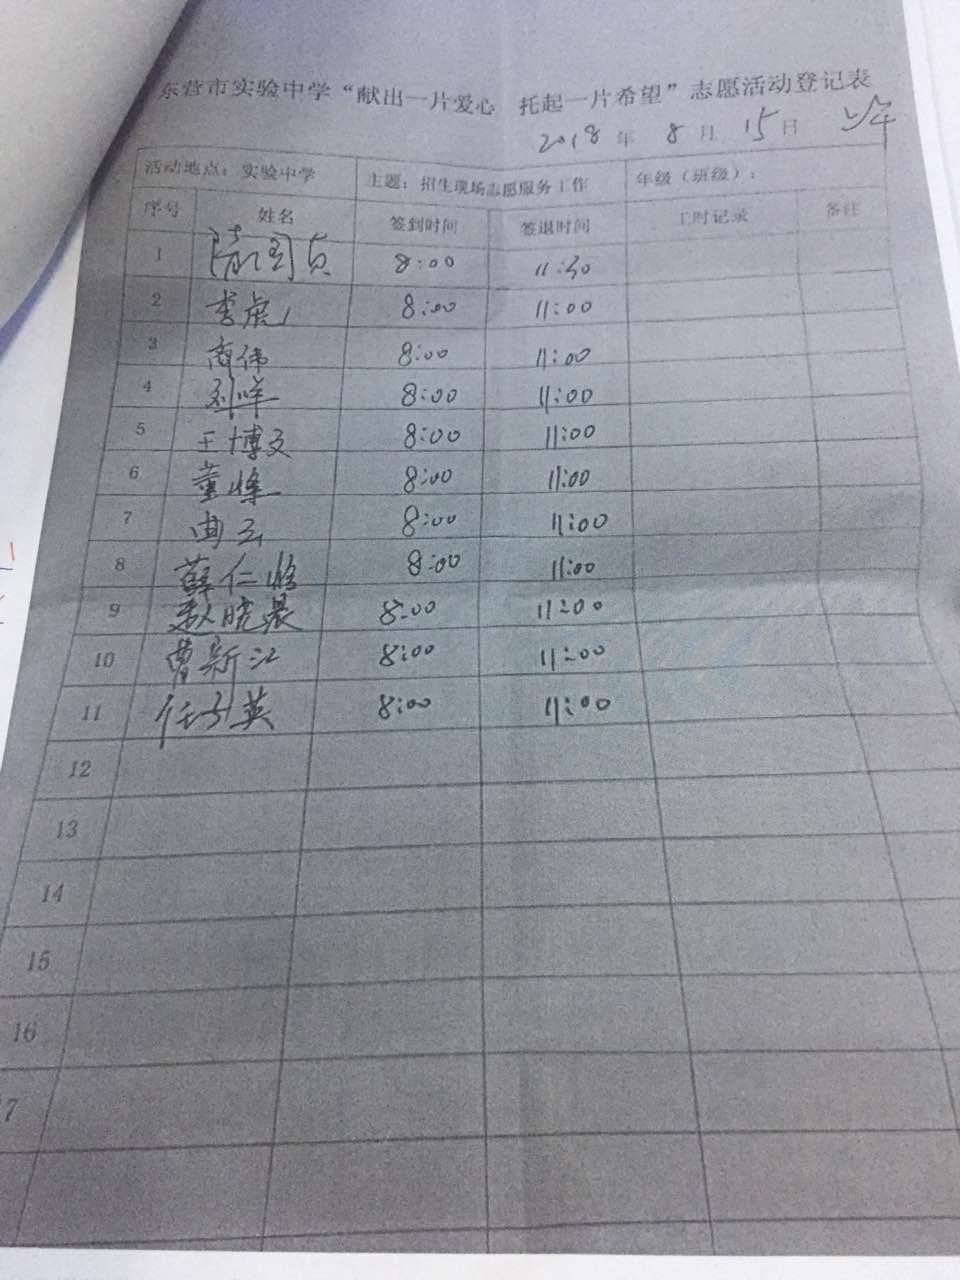 东营市实验中学“献出一片爱心 托起一片希望”志愿活动登记表
2018 年 8 月 15 日
活动地点：实验中学 主题：招生现场志愿服务工作 年级（班级）：
序号 姓名 签到时间 签退时间 工时记录 备注
1 8:00 11:30
2 李虎 8:00 11:00
3 商伟 8:00 11:00
4 刘洋 8:00 11:00
5 王博文 8:00 11:00
6 董峰 8:00 11:00
7 曲云 8:00 11:00
8 薛仁 8:00 11:00
9 赵晓晨 8:00 11:00
10 曹新江 8:00 11:00
11 任子英 8:00 11:00
12
13
14
15
16
7